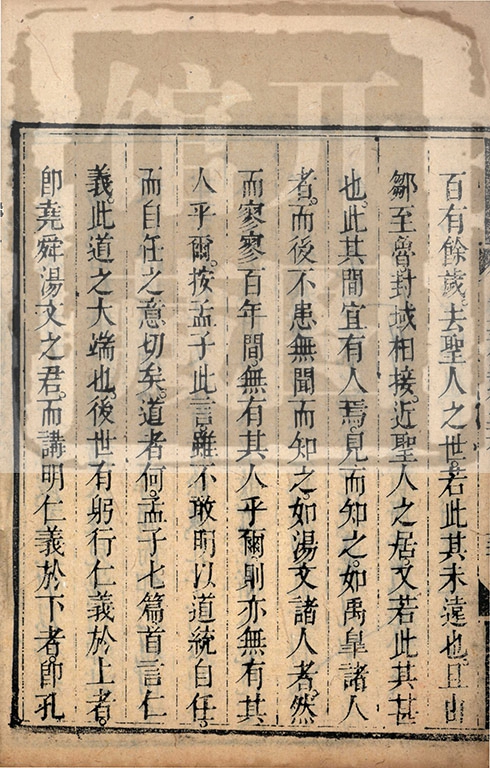 百有餘歲。去聖人之世。若此其未遠也。且由
鄒至魯。封域相接。近聖人之居。又若此其甚
也。此其間宜有人焉。見而知之。如禹皐諸人
者。而後不患無聞而知之。如湯文諸人者。然
而寥寥百年間。無有其人乎爾。則亦無有其
人乎爾。按孟子此言。雖不敢明以道統自任。
而自任之意切矣。道者何。孟子七篇首言仁
義。此道之大端也。後世有躬行仁義於上者。
卽堯舜湯文之君。而講明仁義於下者。卽孔